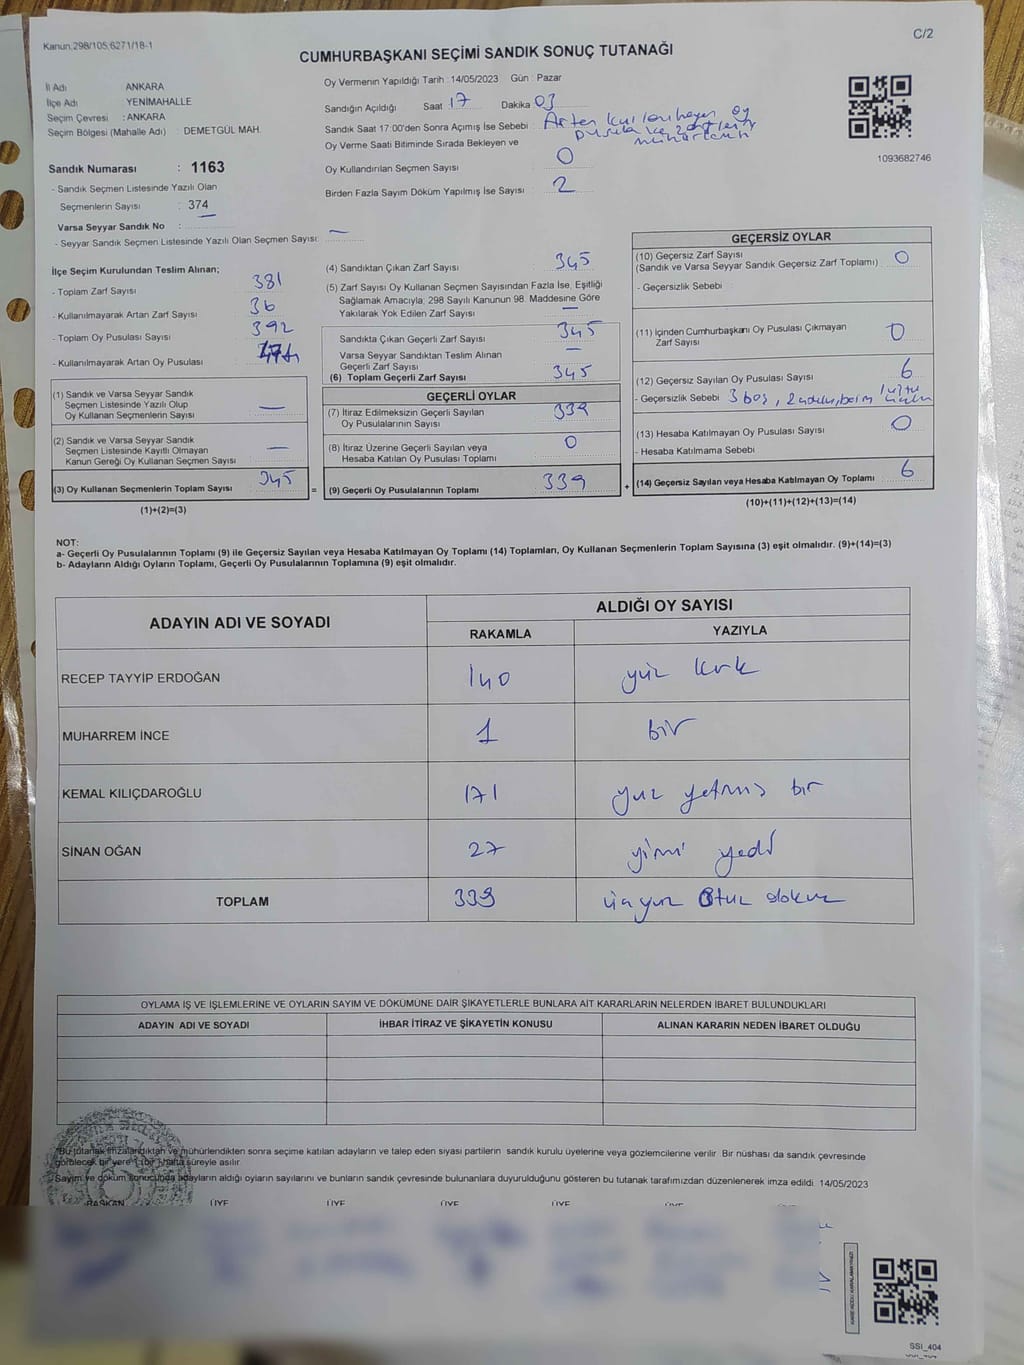 Kanun:298/105;6271/18-1
C/2
CUMHURBAŞKANI SEÇİMİ SANDIK SONUÇ TUTANAĞI
İl Adı ANKARA
İlçe Adı YENİMAHALLE
Seçim Çevresi : ANKARA
Seçim Bölgesi (Mahalle Adı) : DEMETGÜL MAH.
Sandık Numarası : 1163
- Sandık Seçmen Listesinde Yazılı Olan
Seçmenlerin Sayısı : 374
Varsa Seyyar Sandık No :
- Seyyar Sandık Seçmen Listesinde Yazılı Olan Seçmen Sayısı: —
Oy Vermenin Yapıldığı Tarih : 14/05/2023 Gün : Pazar
Sandığın Açıldığı Saat 17 Dakika 03
Sandık Saat 17:00'den Sonra Açımış İse Sebebi : Artan kullanılmayan oy
pusula ve zarfların
Oy Verme Saati Bitiminde Sırada Bekleyen ve
Oy Kullandırılan Seçmen Sayısı 0
Birden Fazla Sayım Döküm Yapılmış İse Sayısı 2
1093682746
İlçe Seçim Kurulundan Teslim Alınan;
- Toplam Zarf Sayısı 381
- Kullanılmayarak Artan Zarf Sayısı 36
- Toplam Oy Pusulası Sayısı 392
- Kullanılmayarak Artan Oy Pusulası
(1) Sandık ve Varsa Seyyar Sandık
Seçmen Listesinde Yazılı Olup
Oy Kullanan Seçmenlerin Sayısı —
(2) Sandık ve Varsa Seyyar Sandık
Seçmen Listesinde Kayıtlı Olmayan
Kanun Gereği Oy Kullanan Seçmen Sayısı —
(3) Oy Kullanan Seçmenlerin Toplam Sayısı 345 =
(1)+(2)=(3)
(4) Sandıktan Çıkan Zarf Sayısı 345
(5) Zarf Sayısı Oy Kullanan Seçmen Sayısından Fazla İse, Eşitliği
Sağlamak Amacıyla; 298 Sayılı Kanunun 98. Maddesine Göre
Yakılarak Yok Edilen Zarf Sayısı —
Sandıkta Çıkan Geçerli Zarf Sayısı 345
Varsa Seyyar Sandıktan Teslim Alınan
Geçerli Zarf Sayısı —
(6) Toplam Geçerli Zarf Sayısı 345
GEÇERLİ OYLAR
(7) İtiraz Edilmeksizin Geçerli Sayılan
Oy Pusulalarının Sayısı 339
(8) İtiraz Üzerine Geçerli Sayılan veya
Hesaba Katılan Oy Pusulası Toplamı 0
(9) Geçerli Oy Pusulalarının Toplamı 339 +
GEÇERSİZ OYLAR
(10) Geçersiz Zarf Sayısı
(Sandık ve Varsa Seyyar Sandık Geçersiz Zarf Toplamı) 0
- Geçersizlik Sebebi :
(11) İçinden Cumhurbaşkanı Oy Pusulası Çıkmayan
Zarf Sayısı 0
(12) Geçersiz Sayılan Oy Pusulası Sayısı 6
- Geçersizlik Sebebi 3 boş,
(13) Hesaba Katılmayan Oy Pusulası Sayısı 0
- Hesaba Katılmama Sebebi
(14) Geçersiz Sayılan veya Hesaba Katılmayan Oy Toplamı 6
(10)+(11)+(12)+(13)=(14)
NOT:
a- Geçerli Oy Pusulalarının Toplamı (9) ile Geçersiz Sayılan veya Hesaba Katılmayan Oy Toplamı (14) Toplamları, Oy Kullanan Seçmenlerin Toplam Sayısına (3) eşit olmalıdır. (9)+(14)=(3)
b- Adayların Aldığı Oyların Toplamı, Geçerli Oy Pusulalarının Toplamına (9) eşit olmalıdır.
ADAYIN ADI VE SOYADI ALDIĞI OY SAYISI
RAKAMLA YAZIYLA
RECEP TAYYİP ERDOĞAN 140 yüz kırk
MUHARREM İNCE 1 bir
KEMAL KILIÇDAROĞLU 171 yüz yetmiş bir
SİNAN OĞAN 27 yirmi yedi
TOPLAM 339 üçyüz otuz dokuz
OYLAMA İŞ VE İŞLEMLERİNE VE OYLARIN SAYIM VE DÖKÜMÜNE DAİR ŞİKAYETLERLE BUNLARA AİT KARARLARIN NELERDEN İBARET BULUNDUKLARI
ADAYIN ADI VE SOYADI İHBAR İTİRAZ VE ŞİKAYETİN KONUSU ALINAN KARARIN NEDEN İBARET OLDUĞU
*Bu tutanak imzalandıktan ve mühürlendikten sonra seçime katılan adayların ve talep eden siyasi partilerin sandık kurulu üyelerine veya gözlemcilerine verilir Bir nüshası da sandık çevresinde
görülecek bir yere 1 (bir) hafta süreyle asılır.
Sayım ve döküm sonucunda adayların aldığı oyların sayılarını ve bunların sandık çevresinde bulunanlara duyurulduğunu gösteren bu tutanak tarafımızdan düzenlenerek imza edildi. 14/05/2023
BAŞKAN ÜYE ÜYE ÜYE ÜYE ÜYE ÜYE
SSI_404